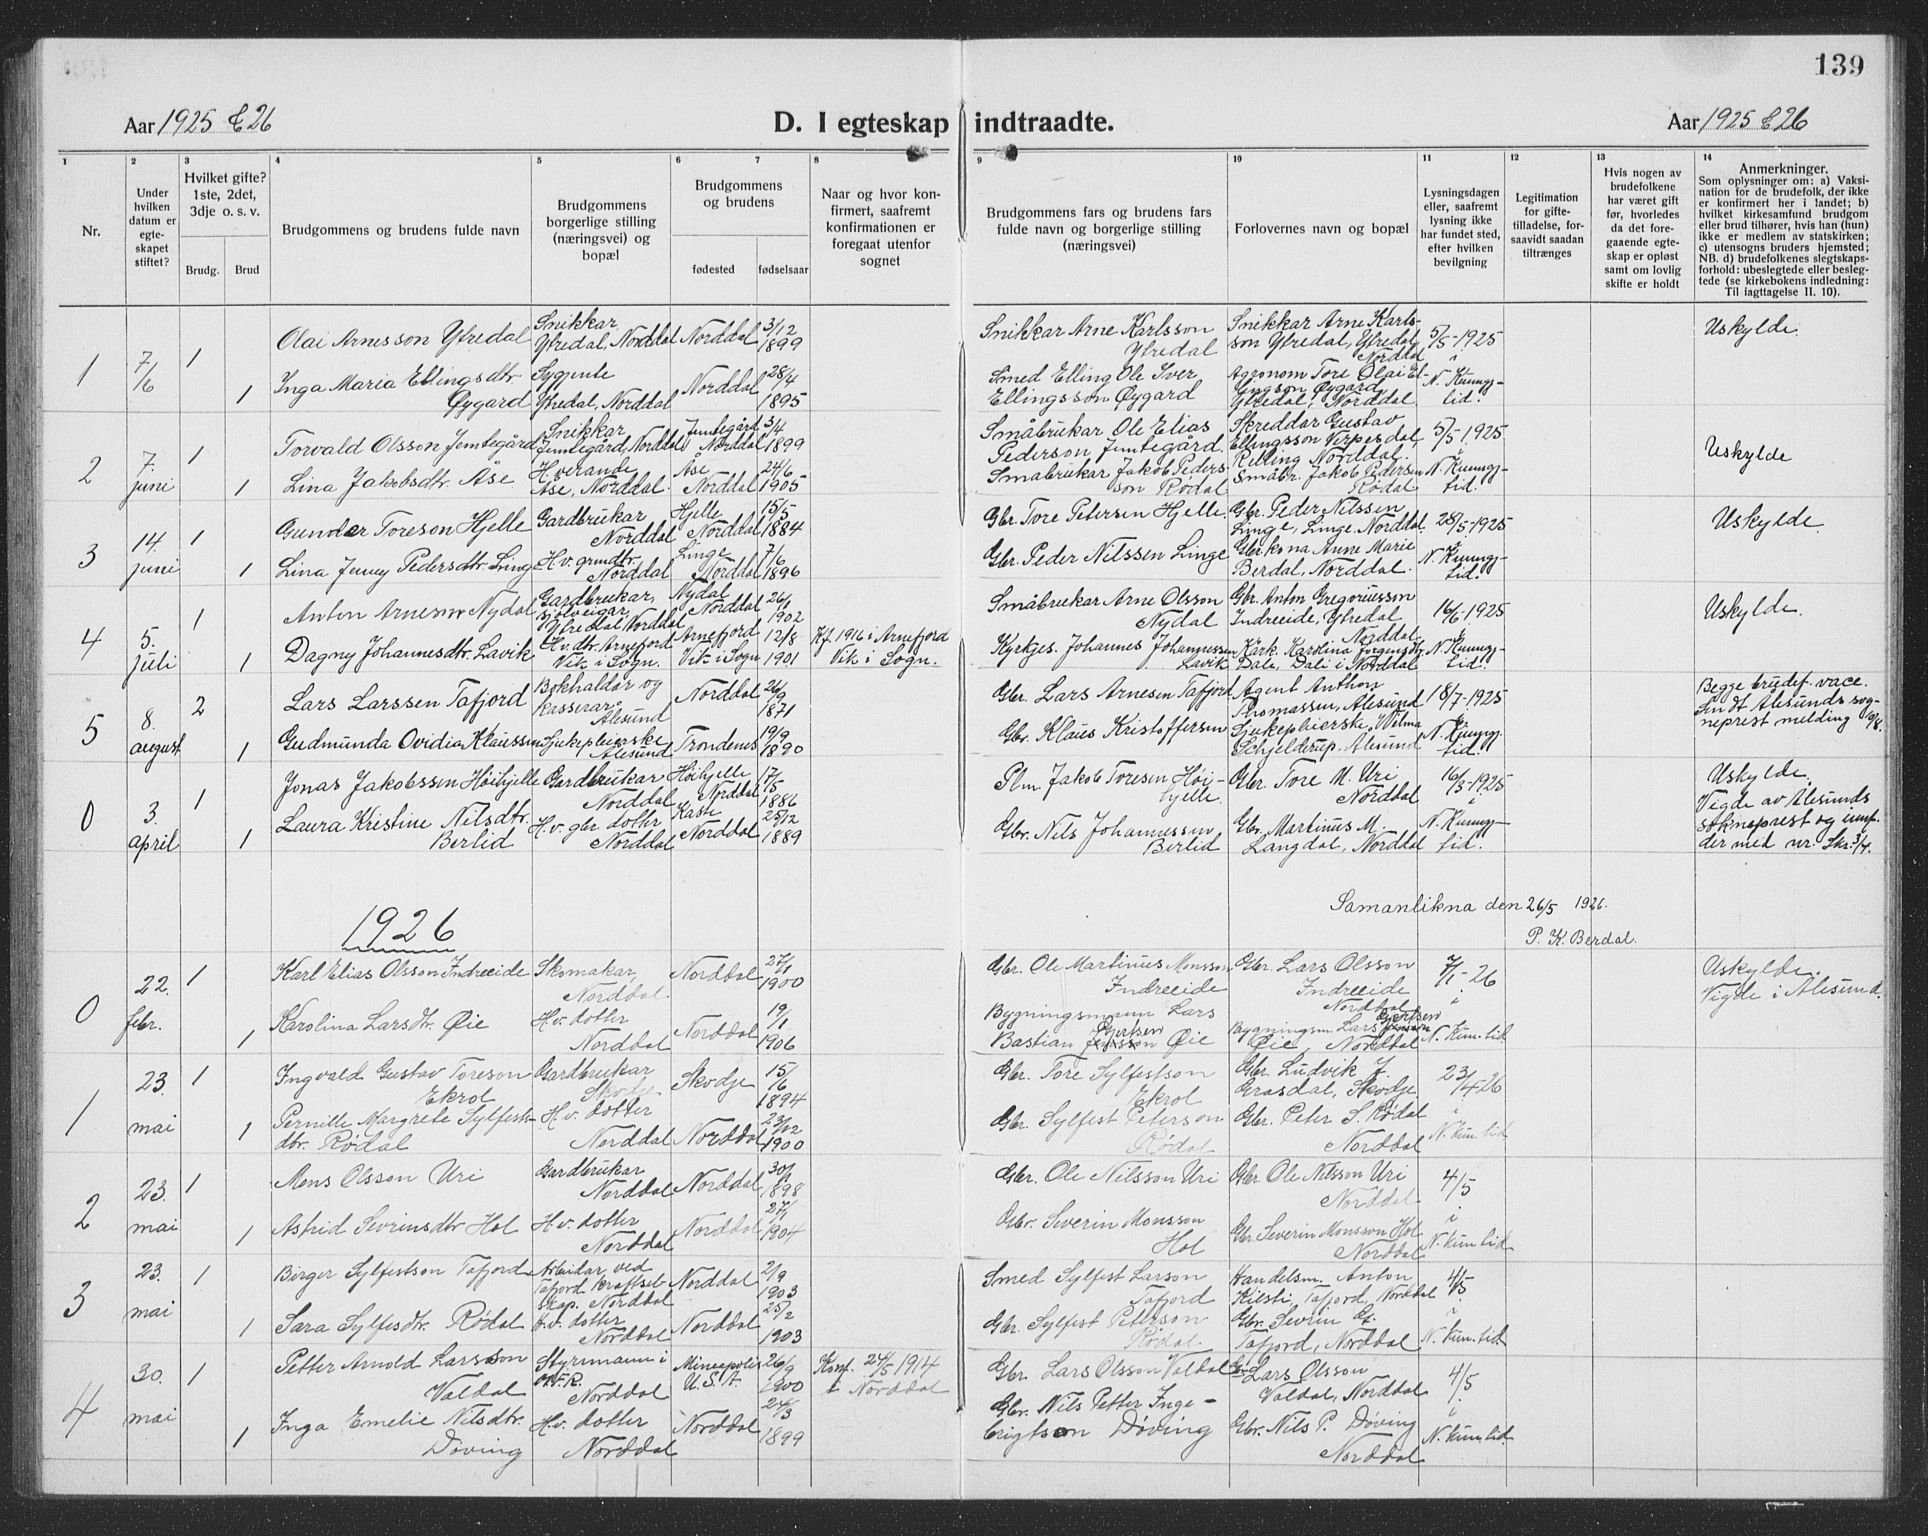 139
Aar 1925 & 26
D. I egteskap indtraadte.
Aar 1925 & 26
1 2 3 4 5 6 7 8 9 10 11 12 13 14
Nr.
Under hvilken datum er egteskapet stiftet?
Hvilket gifte? 1ste, 2det, 3dje o. s. v.
Brudg. Brud
Brudgommens og brudens fulde navn
Brudgommens borgerlige stilling (næringsvei) og bopæl
Brudgommens og brudens
fødested fødselsaar
Naar og hvor konfirmert, saafremt konfirmationen er foregaat utenfor sognet
Brudgommens fars og brudens fars fulde navn og borgerlige stilling (næringsvei)
Forlovernes navn og bopæl
Lysningsdagen eller, saafremt lysning ikke har fundet sted, efter hvilken bevilgning
Legitimation for giftetilladelse, forsaavidt saadan tiltrænges
Hvis nogen av brudefolkene har været gift før, hvorledes da det foregaaende egteskap er opløst samt om lovlig skifte er holdt
Anmerkninger.
Som oplysninger om: a) Vaksination for de brudefolk, der ikke er konfirmert her i landet; b) hvilket kirkesamfund brudgom eller brud tilhører, hvis han (hun) ikke er medlem av statskirken; c) utensogns bruders hjemsted; NB. d) brudefolkenes slegtskapsforhold: ubeslegtede eller beslegtede (se kirkebokens indledning: Til iagttagelse II. 10).
1 7/6 1 Olai Arnesson Ytredal Snikkar Ytredal, Norddal Norddal 3/12 1899 Snikkar Arne Karlsson Ytredal Snikkar Arne Karlsson Ytredal, Ytredal, Norddal 5/5-1925 Uskylde.
1 Inga Maria Ellingsdtr. Øygard Sygjente Ytredal, Norddal Norddal 28/4 1895 Smed Elling Ole Iver Ellingsson Øygard Agronom Tore Olai Ellingson Øygard Ytredal, Norddal. i N. Kunngj-tid.
2 7. juni 1 Torvald Olsson Jemtegård Snikkar Jemtegård, Norddal Jemtegård Norddal 3/4 1899 Småbrukar Ole Elias Pederson Jemtegård. Skreddar Gustav Ellingsson Verpesdal Relling Norddal. 5/5-1925 Uskylde
1 Lina Jakobsdtr. Åse H.verande Åse, Norddal. Åse Norddal 24/6 1905 Småbrukar Jakob Pedersson Rødal Småbr. Jakob Pedersen Rødal i N. Kunngj-tid.
3 14. juni 1 Gunder Toreson Hjelle Gardbrukar Norddal Hjelle Norddal 15/5 1884 Gbr. Tore Petersen Hjelle. Gbr. Peder Nilssen Linge, Linge, Norddal. 28/5-1925 Uskylde.
1 Lina Jenny Pedersdtr. Linge H.v. grmdtr. Norddal Linge Norddal 7/6 1896 Gbr. Peder Nilssen Linge Gbr.kona Anne Marie Berdal, Norddal. i N. Kunngj-tid.
4 5. juli 1 Anton Arnesen Nydal Gardbrukar, Ytredal, Norddal Nydal Norddal 26/1 1902 Småbrukar Arne Olsson Nydal Gbr. Anton Gregoriussen Indreeide, Ytredal Norddal 16/6-1925 Uskylde.
1 Dagny Johannesdtr. Lavik H.v. dtr. Arnefjord Vik i Sogn. Arnefjord Vik i Sogn 12/8 1901 Kf. 1916 i Arnefjord Vik i Sogn. Kyrkjes. Johannes Johannessen Lavik Kark. Karolina Jørgensdtr. Dale, Dale i Norddal i N. Kunngj-tid.
5 8. august 2 Lars Larssen Tafjord Bokhaldar og kasserar Ålesund Norddal 26/9 1871 Gbr. Lars Arnesen Tafjord Agent Anthon Thomassen, Ålesund 18/7-1925 Begge brudef. vacc. Sendt Ålesunds sogneprest melding 10/8.
1 Gudmunda Ovidia Klaussen Sjukepleiarske Ålesund Trondenes 19/9 1890 Gbr. Klaus Kristoffersen Sjukepleierske Wilma Schjelderup, Ålesund N. Kunngj-tid.
0 3. april 1 Jonas Jakobssen Høihjelle Gardbrukar Norddal Høihjelle Norddal 17/5 1886 Plm. Jakob Toresen Høihjelle. Gbr. Tore M. Uri Norddal 16/3-1925 Uskylde. Vigde av Ålesunds sokneprest og umf. der med nr. Skr. 3/4.
1 Laura Kristine Nilsdtr. Berlid H.v. gbr dotter Norddal Norddal 25/12 1889 Gbr. Nils Johannessen Berlid Gbr. Martinus M. Langdal, Norddal i N. Kunngj-tid.
Samanlikna den 26/5 1926.
P. K. Berdal.
1926
0 22. febr. 1 Karl Elias Olsson Indreeide Skomakar, Norddal. Norddal 27/1 1900 Gbr. Ole Martinus Monsson Indreeide Gbr. Lars Olsson Indreeide Norddal 7/1-26 Uskylde. Vigde i Ålesund.
1 Karolina Larsdtr. Øie H.v. dotter Norddal Norddal 19/1 1906 Bygningsmann Lars Bastian Gjertsen Øie Bygningsm. Lars Gjertsen Øie, Norddal i N. kun. tid.
1 23. mai 1 Ingvald Gustav Toreson Ekrol Gardbrukar Skodje Skodje 15/6 1894 Gbr. Tore Sylfestson Ekrol Gbr. Ludvik J. Grasdal, Skodje 23/4-26
1 Pernille Margrete Sylfestsdtr. Rødal H.v. dotter Norddal Norddal 23/12 1900 Gbr. Sylfest Peterson Rødal Gbr. Peter S. Rødal Norddal i N. kun. tid
2 23. mai 1 Mons Olsson Uri Gardbrukar Norddal Norddal 30/1 1898 Gbr. Ole Nilsson Uri Gbr. Ole Nilsson Uri Norddal 4/5
1 Astrid Severinsdtr Hol H.v. dotter Norddal Norddal 27/1 1904 Gbr. Severin Monsson Hol Gbr Severin Monsson Hol Norddal i N. kun. tid.
3 23. mai 1 Birger Sylfestson Tafjord Arbeidar ved Tafjord kraftselskap. Norddal Norddal 2/9 1903 Smed Sylfest Larson Tafjord Handelsm. Anton Kilsti Tafjord, Norddal 4/5.
1 Sara Sylfesdtr. Rødal H.v. dotter Norddal Norddal 25/2 1903 Gbr. Sylfest Peterson Rødal Gbr. Sevrin Tafjord, Norddal i N. kun. tid.
4 30. mai 1 Petter Arnold Larsson Valdal Styrmann i Norddal Mineapolis U.S.A. 26/9 1900 Konf. 24/5 1914 i Norddal Gbr. Lars Olsson Valdal Gbr. Lars Olsson Valdal, Norddal 4/5
1 Inga Emelie Nilsdtr. Døving H.v. dotter Norddal Norddal 24/3 1899 Gbr. Nils Petter Ingebrigtson Døving Gbr. Nils P. Døving Norddal i N. kun. tid.